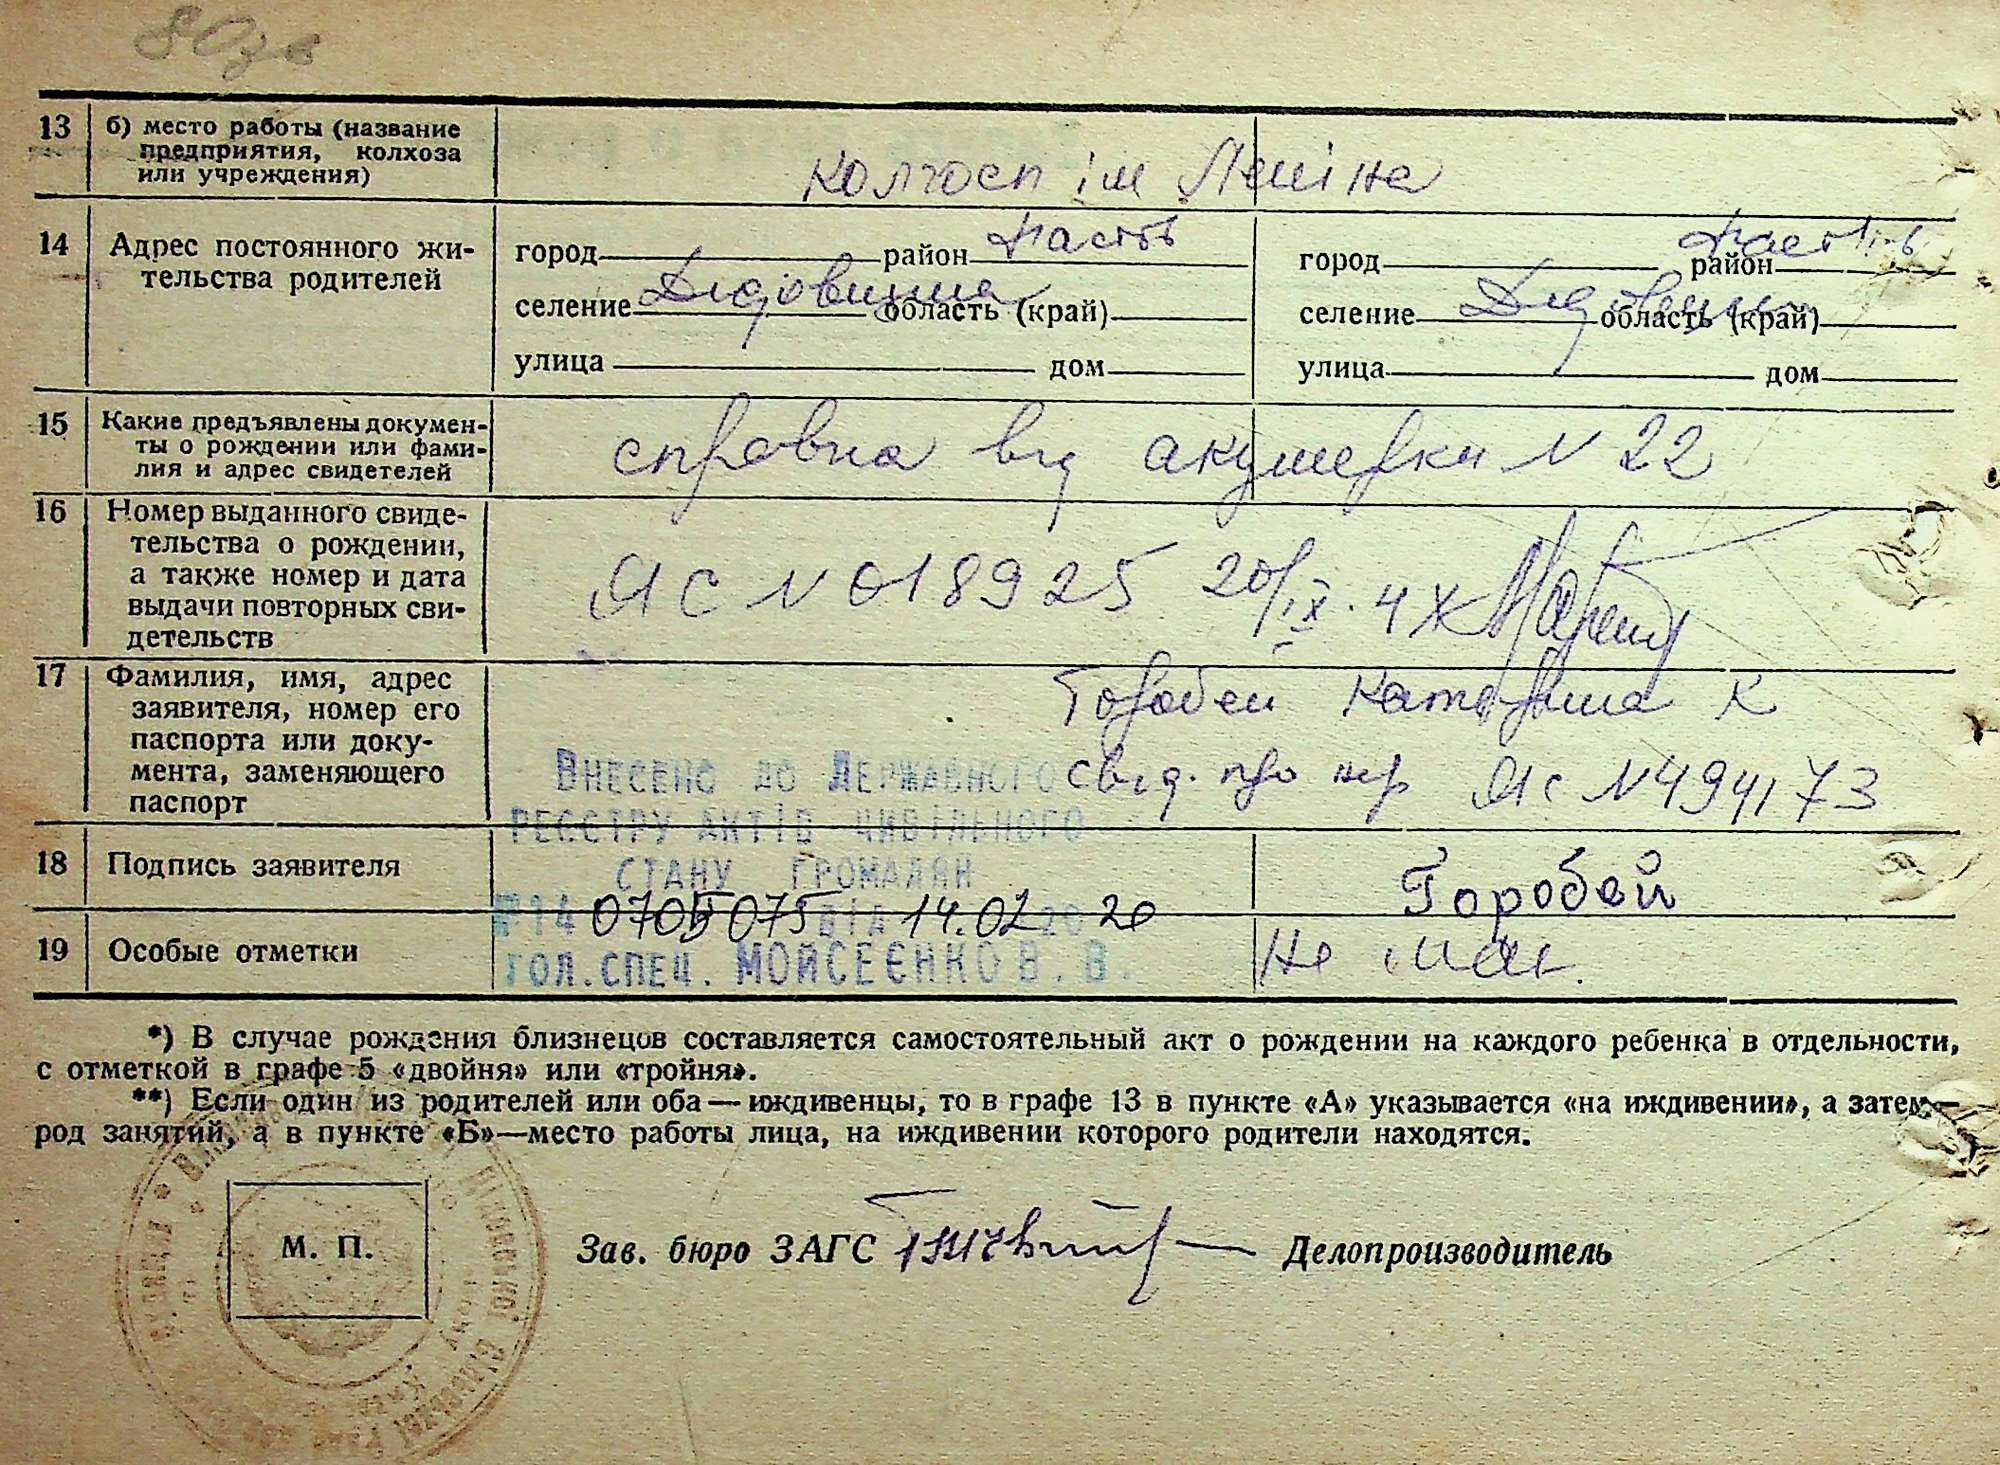 13 б) место работы (название
предприятия, колхоза
или учреждения)
колгосп ім Леніна
14 Адрес постоянного жи-
тельства родителей
город район Фастів
селение Дідовщина область (край)
улица дом
город район Фастів
селение Дідовщина область (край)
улица дом
15 Какие предъявлены докумен-
ты о рождении или фами-
лия и адрес свидетелей
справка від акушерки N 22
16 Номер выданного свиде-
тельства о рождении,
а также номер и дата
выдачи повторных сви-
детельств
ЯС N 018925 20/IX
17 Фамилия, имя, адрес
заявителя, номер его
паспорта или доку-
мента, заменяющего
паспорт
Горобей Катерина К
свід. про нар ЯС N 494173
Внесено до Державного
реєстру актів цивільного
стану громадян
№ 14 від 14.02 2020
гол.спец. Мойсеєнко В. В.
18 Подпись заявителя
Горобей
19 Особые отметки
Не має.
*) В случае рождения близнецов составляется самостоятельный акт о рождении на каждого ребенка в отдельности,
с отметкой в графе 5 «двойня» или «тройня».
**) Если один из родителей или оба—иждивенцы, то в графе 13 в пункте «А» указывается «на иждивении», а затем—
род занятий, а в пункте «Б»—место работы лица, на иждивении которого родители находятся.
М. П.
Зав. бюро ЗАГС
Делопроизводитель